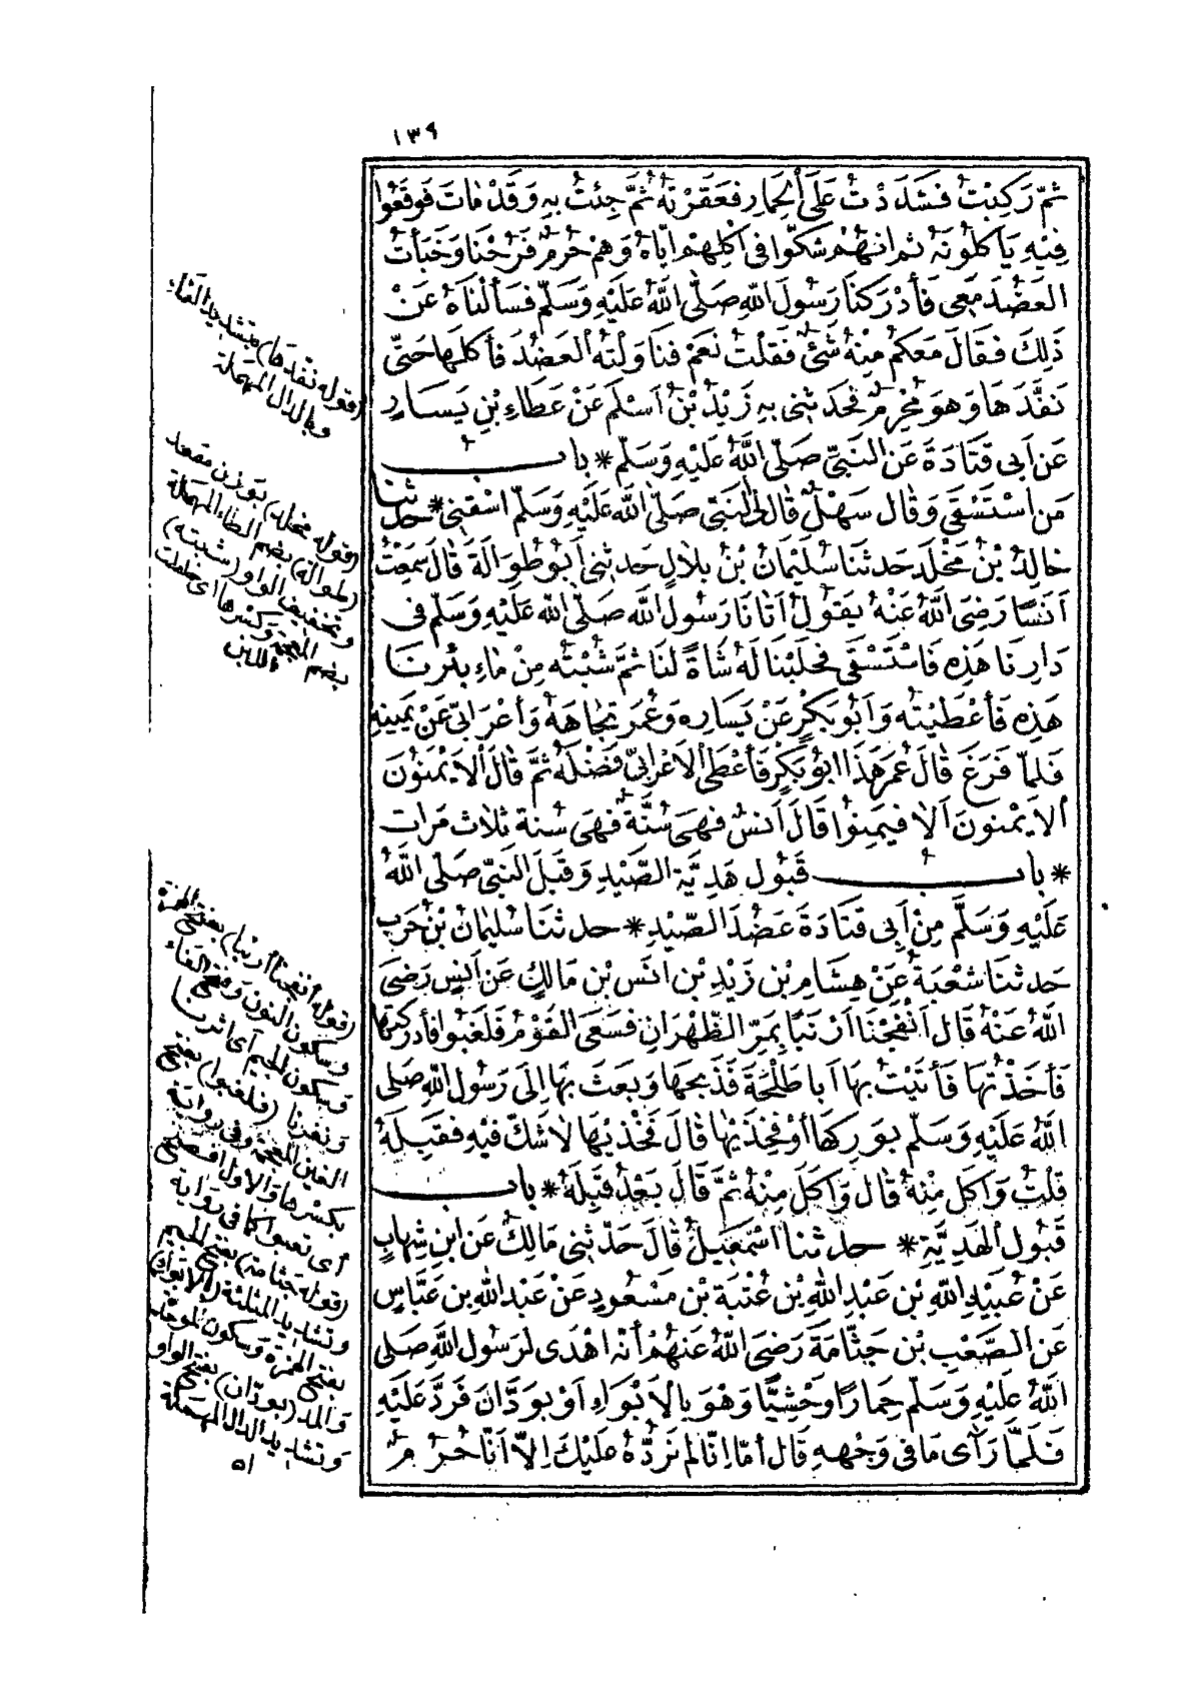 ١٣٩
ثُمَّ رَكِبْتُ فَشَدَدْتُ عَلَى الْحِمَارِ فَعَقَرْتُهُ ثُمَّ جِئْتُ بِهِ وَقَدْ مَاتَ فَوَقَعُوا
فِيْهِ يَأْكُلُونَهُ ثم انهُمْ شَكُّوا فى اكْلِهِمْ ايَّاهُ وَهُمْ حُرُم فَرُحْنَا وَخَبَأْتُ
العَضُدَ مَعِى فَأَدْرَكنَا رَسُولَ اللهِ صَلَّى اللهُ عَلَيْهِ وَسَلَّم فسَألْنَاهُ عَنْ
ذٰلِكَ فَقَالَ مَعَكمْ مِنْهُ شَئٌ فَقلْتُ نَعَمْ فنَاوَلْتهُ العَضُدَ فَأكَلهَا حَتَّى
نَفَّدَهَا وَهوَ مُحْرِم فحَدثنِى بِهِ زَيْدُ بْنُ اَسْلَمَ عَنْ عَطَاءِ بْنِ يَسَارٍ
عَن اَبى قتَادَةَ عَن النبَىِّ صَلَّى اللهُ عَلَيْهِ وَسَلَّم * باب
مَن اسْتَسْقَى وَقَال سَهْلٌ قَال لِى النَبىّ صَلَّى الله عَلَيْهِ وَسَلّم اسْقِنِى * حدثنا
خالِدُ بْنُ مَخْلَدٍ حَدثنَا سُلَيْمَانُ بْنُ بِلَالٍ حَدثنِى أَبُو طُوَالَةَ قَالَ سَمِعْتُ
أنَسًا رَضِىَ اللهُ عَنْهُ يَقولُ أَتَانَا رَسُولُ الله صَلَّى الله عَلَيْهِ وَسَلّم فى
دَارِنَا هَذِهِ فَاسْتَسْقَى فحَلَبْنَا لَهُ شَاةً لَنَا ثمَّ شُبْتُه مِنْ مَاءِ بئْرِنَا
هَذِهِ فَأعْطَيْتُه وَاَبُو بَكْرٍ عَنْ يَسَارِهِ وَعُمَرُ تِجَاهَهُ وَأعْرَابِىّ عَنْ يَمِينِهِ
فَلمّا فَرَغَ قَالَ عُمَرُ هَذَا ابُو بَكْرٍ فَأعْطَى الأعْرَابِىَّ فَضْلَهُ ثمَّ قَالَ الأيْمَنُونَ
الأيْمَنونَ اَلا فيَمِنُوا قَالَ اَنسٌ فَهىَ سُنَّةٌ فَهىَ سُنة ثلاث مَرات
* باب قَبُول هَدِيَّة الصَّيْدِ وَقَبِلَ النَبىّ صَلَّى اللهُ
عَلَيْهِ وَسَلَّم مِنْ أَبِى قَتَادَةَ عَضُدَ الصَّيْدِ * حدثنَا سُليمَانُ بْن حَرْبٍ
حَدثنَا شعْبَةُ عَنْ هِشَامِ بْن زَيْدِ بْن انَس بْن مَالِكٍ عَن اَنَسٍ رَضِىَ
اللهُ عَنْهُ قَال أَنْفَجْنَا اَرْنَبًا بِمَرِّ الظَّهْرَانِ فَسَعَى القَوْمُ فَلَغَبُوا فأدْرَكتُهَا
فَأخَذْتُهَا فَأتَيْتُ بهَا اَبا طَلْحَةَ فَذَبحَهَا وَبَعَثَ بهَا اِلَى رَسُول اللهِ صَلى
اللهُ عَلَيْهِ وَسَلم بوَرِكهَا أوْ فخِذَيْهَا قَالَ فَخْذَيْهَا لا شَكّ فيْهِ فَقَبِلَهُ
قلْتُ وَاَكَلَ مِنْهُ قَال وَاَكَلَ مِنْهُ ثمَّ قَالَ بَعْدُ قَبِلَهُ * باب
قَبُول الهَدِيَّةِ * حدثنا اسْمَعِيلُ قَالَ حَدَّثنِى مَالِكٌ عَن ابْنِ شِهَابٍ
عَنْ عُبَيْدِ اللهِ بْن عَبْدِ اللهِ بْن عُتْبَة بْن مَسْعُودٍ عَنْ عَبْدِ اللهِ بن عَبَّاسٍ
عَن الصَّعْبِ بْن جَثَّامَةَ رَضِىَ اللهُ عَنهُمْ أنه اهْدَى لِرَسُول اللهِ صَلى
اللهُ عَلَيْهِ وَسَلّم حِمَارًا وَحْشِيًّا وَهْوَ بالأبْوَاءِ اَوْ بوَدَّانَ فَرَدَّ عَلَيْهِ
فَلَمَّا رَآى مَا فى وَجْههِ قَال أمَّا اِنّا لم نَرُدّهُ عَلَيْكَ اِلاّ اَنّا حُرُم
(قوله نفدها) بتشديد الفاء
وبالدال المهملة
(قوله مخلد) بوزن مقعد
(طوالة) بضم الطاء المهملة
وتخفيف الواو (شبته)
بضم المعجمة وكسرها أى خلطت
اللبن
(قوله أنفجنا أرنبا) بفتح الهمزة
وسكون النون وفتح الفاء
وسكون الجيم أى اثرنا
ونفرنا (فلغبوا) بفتح
الغين المعجمة وفى رواية
بكسرها والاول افصح
أى تعبوا كما فى رواية
(قوله جثامة) بفتح الجيم
وتشديد المثلثة (بالابواء)
بفتح الهمزة وسكون الموحدة
والمد (بودّان) بفتح الواو
وتشديد الدال المهملة
اه